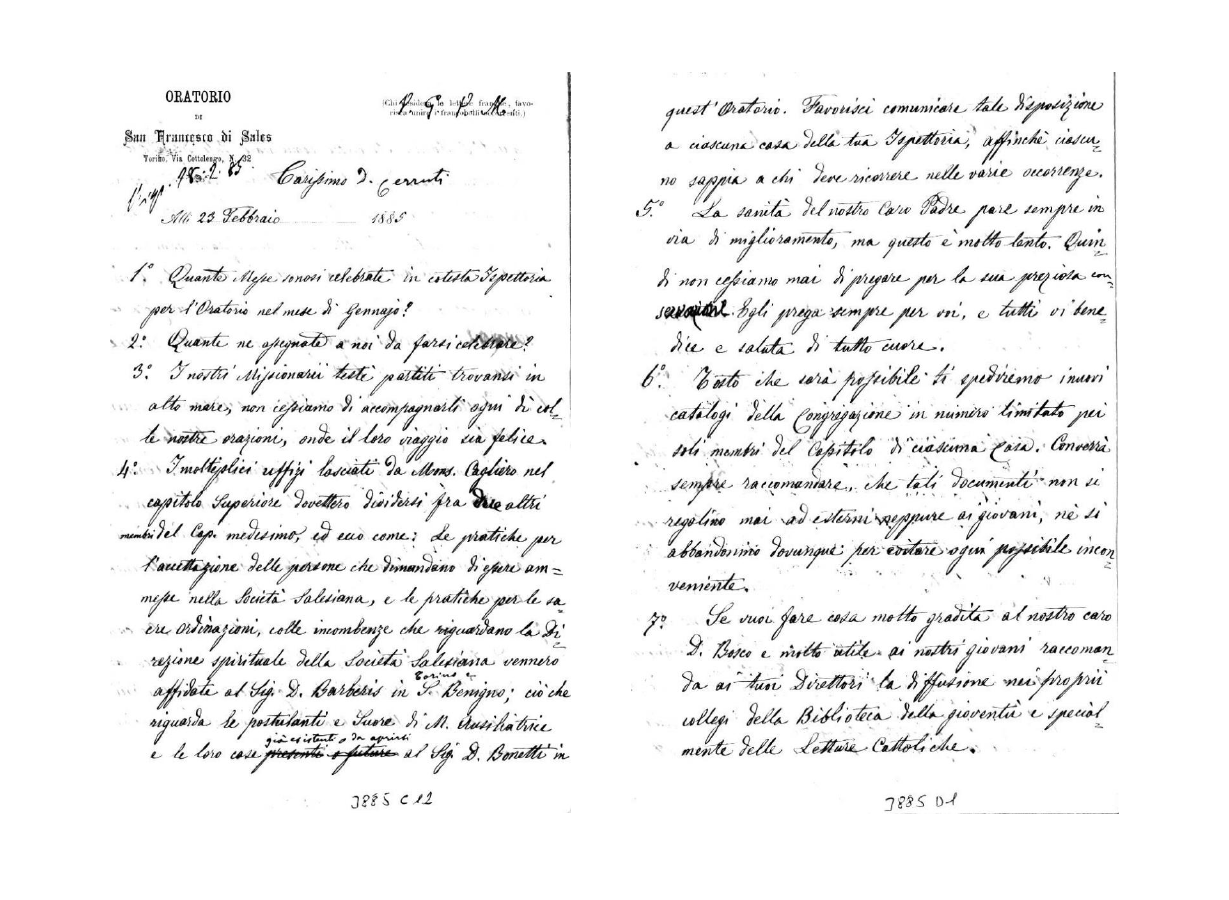 ORATORIO
DI
San Francesco di Sales
Torino, Via Cottolengo, N. 32
(Chi desidera le lettere franche, favo-
risca unire i francobolli occorrenti.)
P. G. P. M.
28. 2. 85
Carissimo D. Cerruti
Alli 23 Febbraio 1885
1° Quante Messe sonosi celebrate in cotesta Ispettoria
per l'Oratorio nel mese di Gennajo?
2° Quante ne assegnate a noi da farsi celebrare?
3° I nostri Missionarii testè partiti trovansi in
alto mare, non cessiamo di accompagnarli ogni dì col-
le nostre orazioni, onde il loro viaggio sia felice.
4° I molteplici uffizi lasciati da Mons. Cagliero nel
capitolo Superiore dovettero dividersi fra due altri
membri del Cap. medesimo, ed ecco come: Le pratiche per
l'accettazione delle persone che dimandano di essere am=
messe nella Società Salesiana, e le pratiche per le sa=
cre Ordinazioni, colle incombenze che riguardano la Di=
rezione spirituale della Società Salesiana vennero
Torino e
affidate al Sig. D. Barberis in S. Benigno; ciò che
riguarda le postulanti e Suore di M. Ausiliatrice
già esistenti o da aprirsi
e le loro case presenti o future al Sig. D. Bonetti in
J885 C12
quest'Oratorio. Favorisci comunicare tale disposizione
a ciascuna casa della tua Ispettoria, affinchè ciascu=
no sappia a chi deve ricorrere nelle varie occorrenze.
5° La sanità del nostro Caro Padre pare sempre in
via di miglioramento, ma questo è molto lento. Quin=
di non cessiamo mai di pregare per la sua preziosa con=
servazione. Egli prega sempre per voi, e tutti vi bene=
dice e saluta di tutto cuore.
6° Tosto che sarà possibile ti spediremo i nuovi
catalogi della Congregazione in numero limitato pei
soli membri del Capitolo di ciascuna Casa. Converrà
sempre raccomandare, che tali documenti non si
regalino mai ad esterni neppure ai giovani, nè si
abbandonino dovunque per evitare ogni possibile incon=
veniente.
7° Se vuoi fare cosa molto gradita al nostro caro
D. Bosco e molto utile ai nostri giovani raccoman=
da ai tuoi Direttori la diffusione nei proprii
collegi della Biblioteca della gioventù e special=
mente delle Letture Cattoliche.
J885 D1